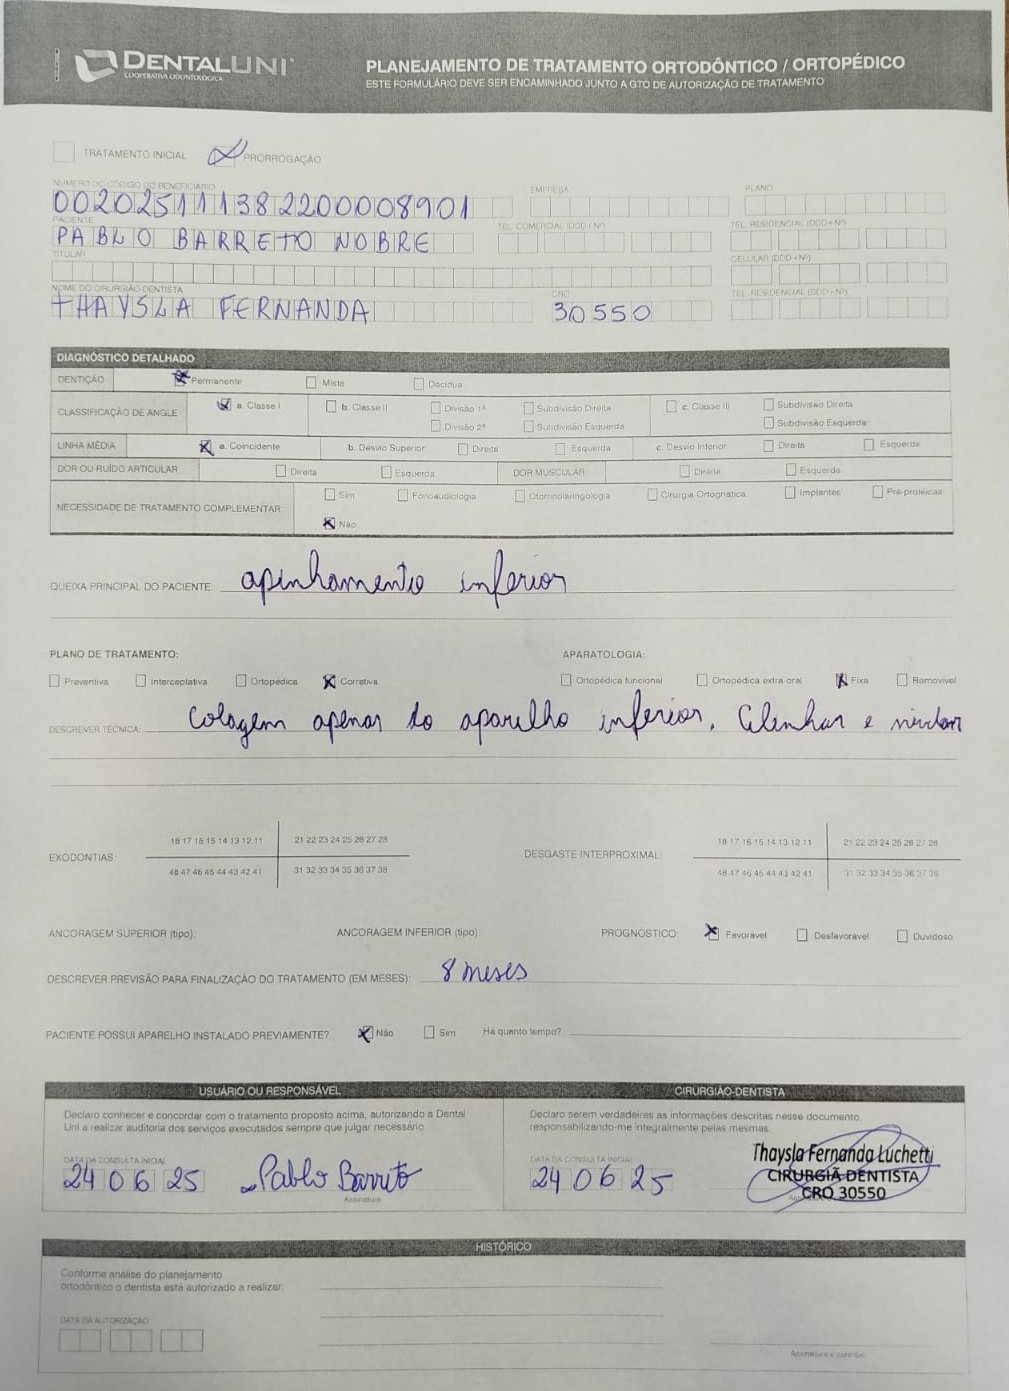 DENTALUNI
COOPERATIVA ODONTOLÓGICA
PLANEJAMENTO DE TRATAMENTO ORTODÔNTICO / ORTOPÉDICO
ESTE FORMULÁRIO DEVE SER ENCAMINHADO JUNTO A GTO DE AUTORIZAÇÃO DE TRATAMENTO
TRATAMENTO INICIAL PRORROGAÇÃO
NÚMERO DO CÓDIGO DO BENEFICIÁRIO EMPRESA PLANO
002025111382200008901
PACIENTE TEL. COMERCIAL (DDD + Nº) TEL. RESIDENCIAL (DDD + Nº)
PABLO BARRETO NOBRE
TITULAR CELULAR (DDD + Nº)
NOME DO CIRURGIÃO-DENTISTA CRO TEL. RESIDENCIAL (DDD + Nº)
THAYSLA FERNANDA 30550
DIAGNÓSTICO DETALHADO
DENTIÇÃO Permanente Mista Decídua
CLASSIFICAÇÃO DE ANGLE a. Classe I b. Classe II Divisão 1ª Subdivisão Direita c. Classe III Subdivisão Direita
Divisão 2ª Subdivisão Esquerda Subdivisão Esquerda
LINHA MÉDIA a. Coincidente b. Desvio Superior: Direita Esquerda c. Desvio Inferior: Direita Esquerda
DOR OU RUÍDO ARTICULAR Direita Esquerda DOR MUSCULAR Direita Esquerda
NECESSIDADE DE TRATAMENTO COMPLEMENTAR Sim Fonoaudiologia Otorrinolaringologia Cirurgia Ortognática Implantes Pré-protéicas
Não
QUEIXA PRINCIPAL DO PACIENTE: apinhamento inferior
PLANO DE TRATAMENTO: APARATOLOGIA:
Preventiva Interceptativa Ortopédica Corretiva Ortopédica funcional Ortopédica extra-oral Fixa Removível
DESCREVER TÉCNICA: Colagem apenas do aparelho inferior. Alinhar e nivelar
18 17 16 15 14 13 12 11 21 22 23 24 25 26 27 28 18 17 16 15 14 13 12 11 21 22 23 24 25 26 27 28
EXODONTIAS: DESGASTE INTERPROXIMAL:
48 47 46 45 44 43 42 41 31 32 33 34 35 36 37 38 48 47 46 45 44 43 42 41 31 32 33 34 35 36 37 38
ANCORAGEM SUPERIOR (tipo): ANCORAGEM INFERIOR (tipo): PROGNÓSTICO: Favorável Desfavorável Duvidoso
DESCREVER PREVISÃO PARA FINALIZAÇÃO DO TRATAMENTO (EM MESES): 8 meses
PACIENTE POSSUI APARELHO INSTALADO PREVIAMENTE? Não Sim Há quanto tempo?
USUÁRIO OU RESPONSÁVEL CIRURGIÃO-DENTISTA
Declaro conhecer e concordar com o tratamento proposto acima, autorizando a Dental
Uni a realizar auditoria dos serviços executados sempre que julgar necessário.
Declaro serem verdadeiras as informações descritas nesse documento,
responsabilizando-me integralmente pelas mesmas.
DATA DA CONSULTA INICIAL
24 06 25 Pablo Barreto
Assinatura
DATA DA CONSULTA INICIAL
24 06 25
Thaysla Fernanda Luchetti
CIRURGIÃ DENTISTA
CRO 30550
HISTÓRICO
Conforme análise do planejamento
ortodôntico o dentista está autorizado a realizar:
DATA DA AUTORIZAÇÃO
Assinatura e carimbo